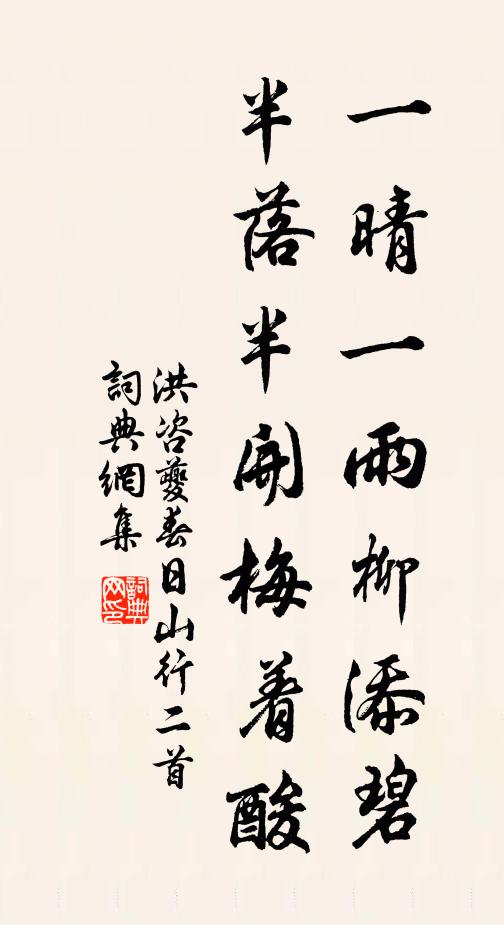 一晴一雨柳添碧
半落半開梅着酸
洪咨夔春日山行二首
詞典網集
詞典網印